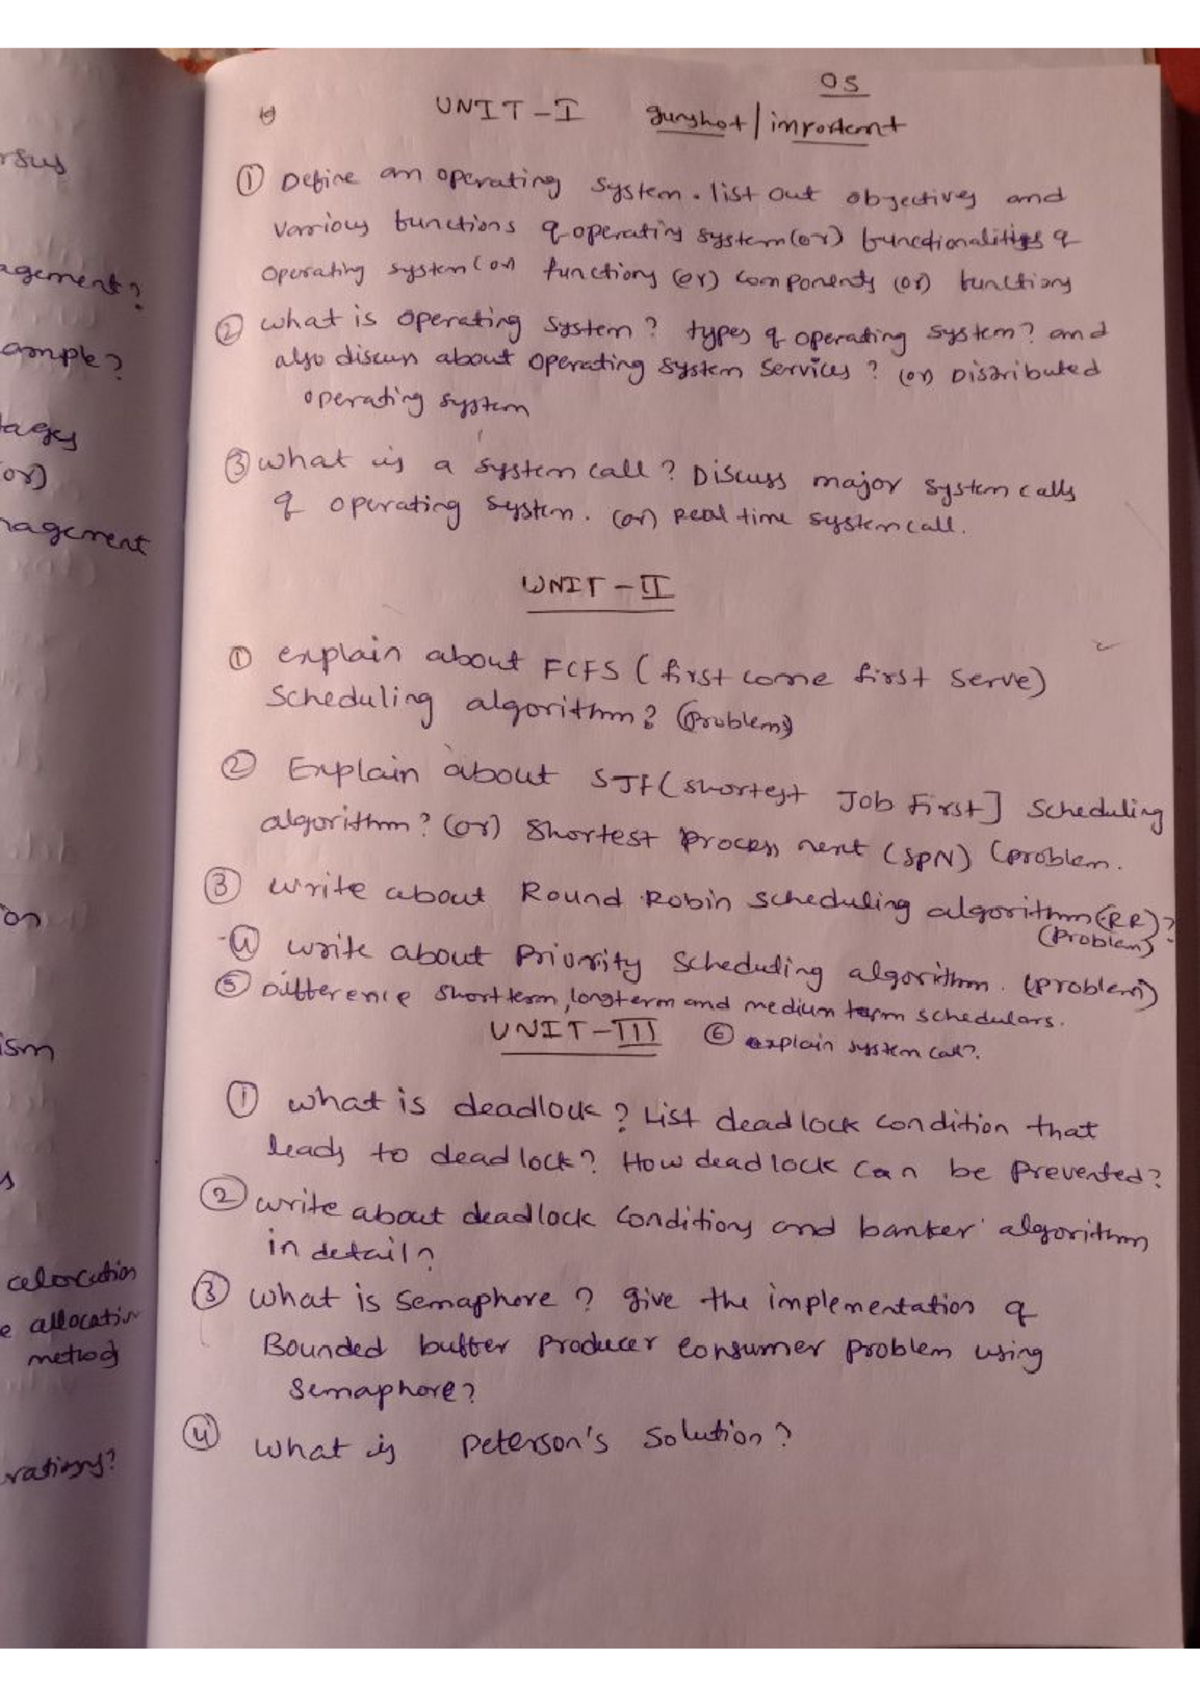 OS
UNIT-I gunshot/important
① Define an operating system. list out objectives and
various functions of operating system (or) functionalities of
operating system (or) functions (or) components (or) functions
② what is operating system? types of operating system? and
also discuss about operating system services? (or) Distributed
operating system
③ what is a system call? Discuss major system calls
of operating system. (or) Real time system call.
UNIT-II
① explain about FCFS (first come first serve)
Scheduling algorithm? (problem)
② Explain about SJF (shortest Job First] scheduling
algorithm? (or) Shortest process next (SPN) (problem.
③ write about Round Robin scheduling algorithm (RR)?
(Problem)
④ write about Priority scheduling algorithm. (problem)
⑤ Difference short term, long term and medium term schedulars.
UNIT-III ⑥ explain system call?
① what is deadlock? List deadlock condition that
leads to deadlock? How deadlock can be prevented?
② write about deadlock conditions and banker algorithm
in detail?
③ what is semaphore? give the implementation of
Bounded buffer producer consumer problem using
semaphore?
④ what is peterson's solution?
rsus
agement?
ample?
tages
or)
nagement
on
ism
s
e allocation
methods
rations?